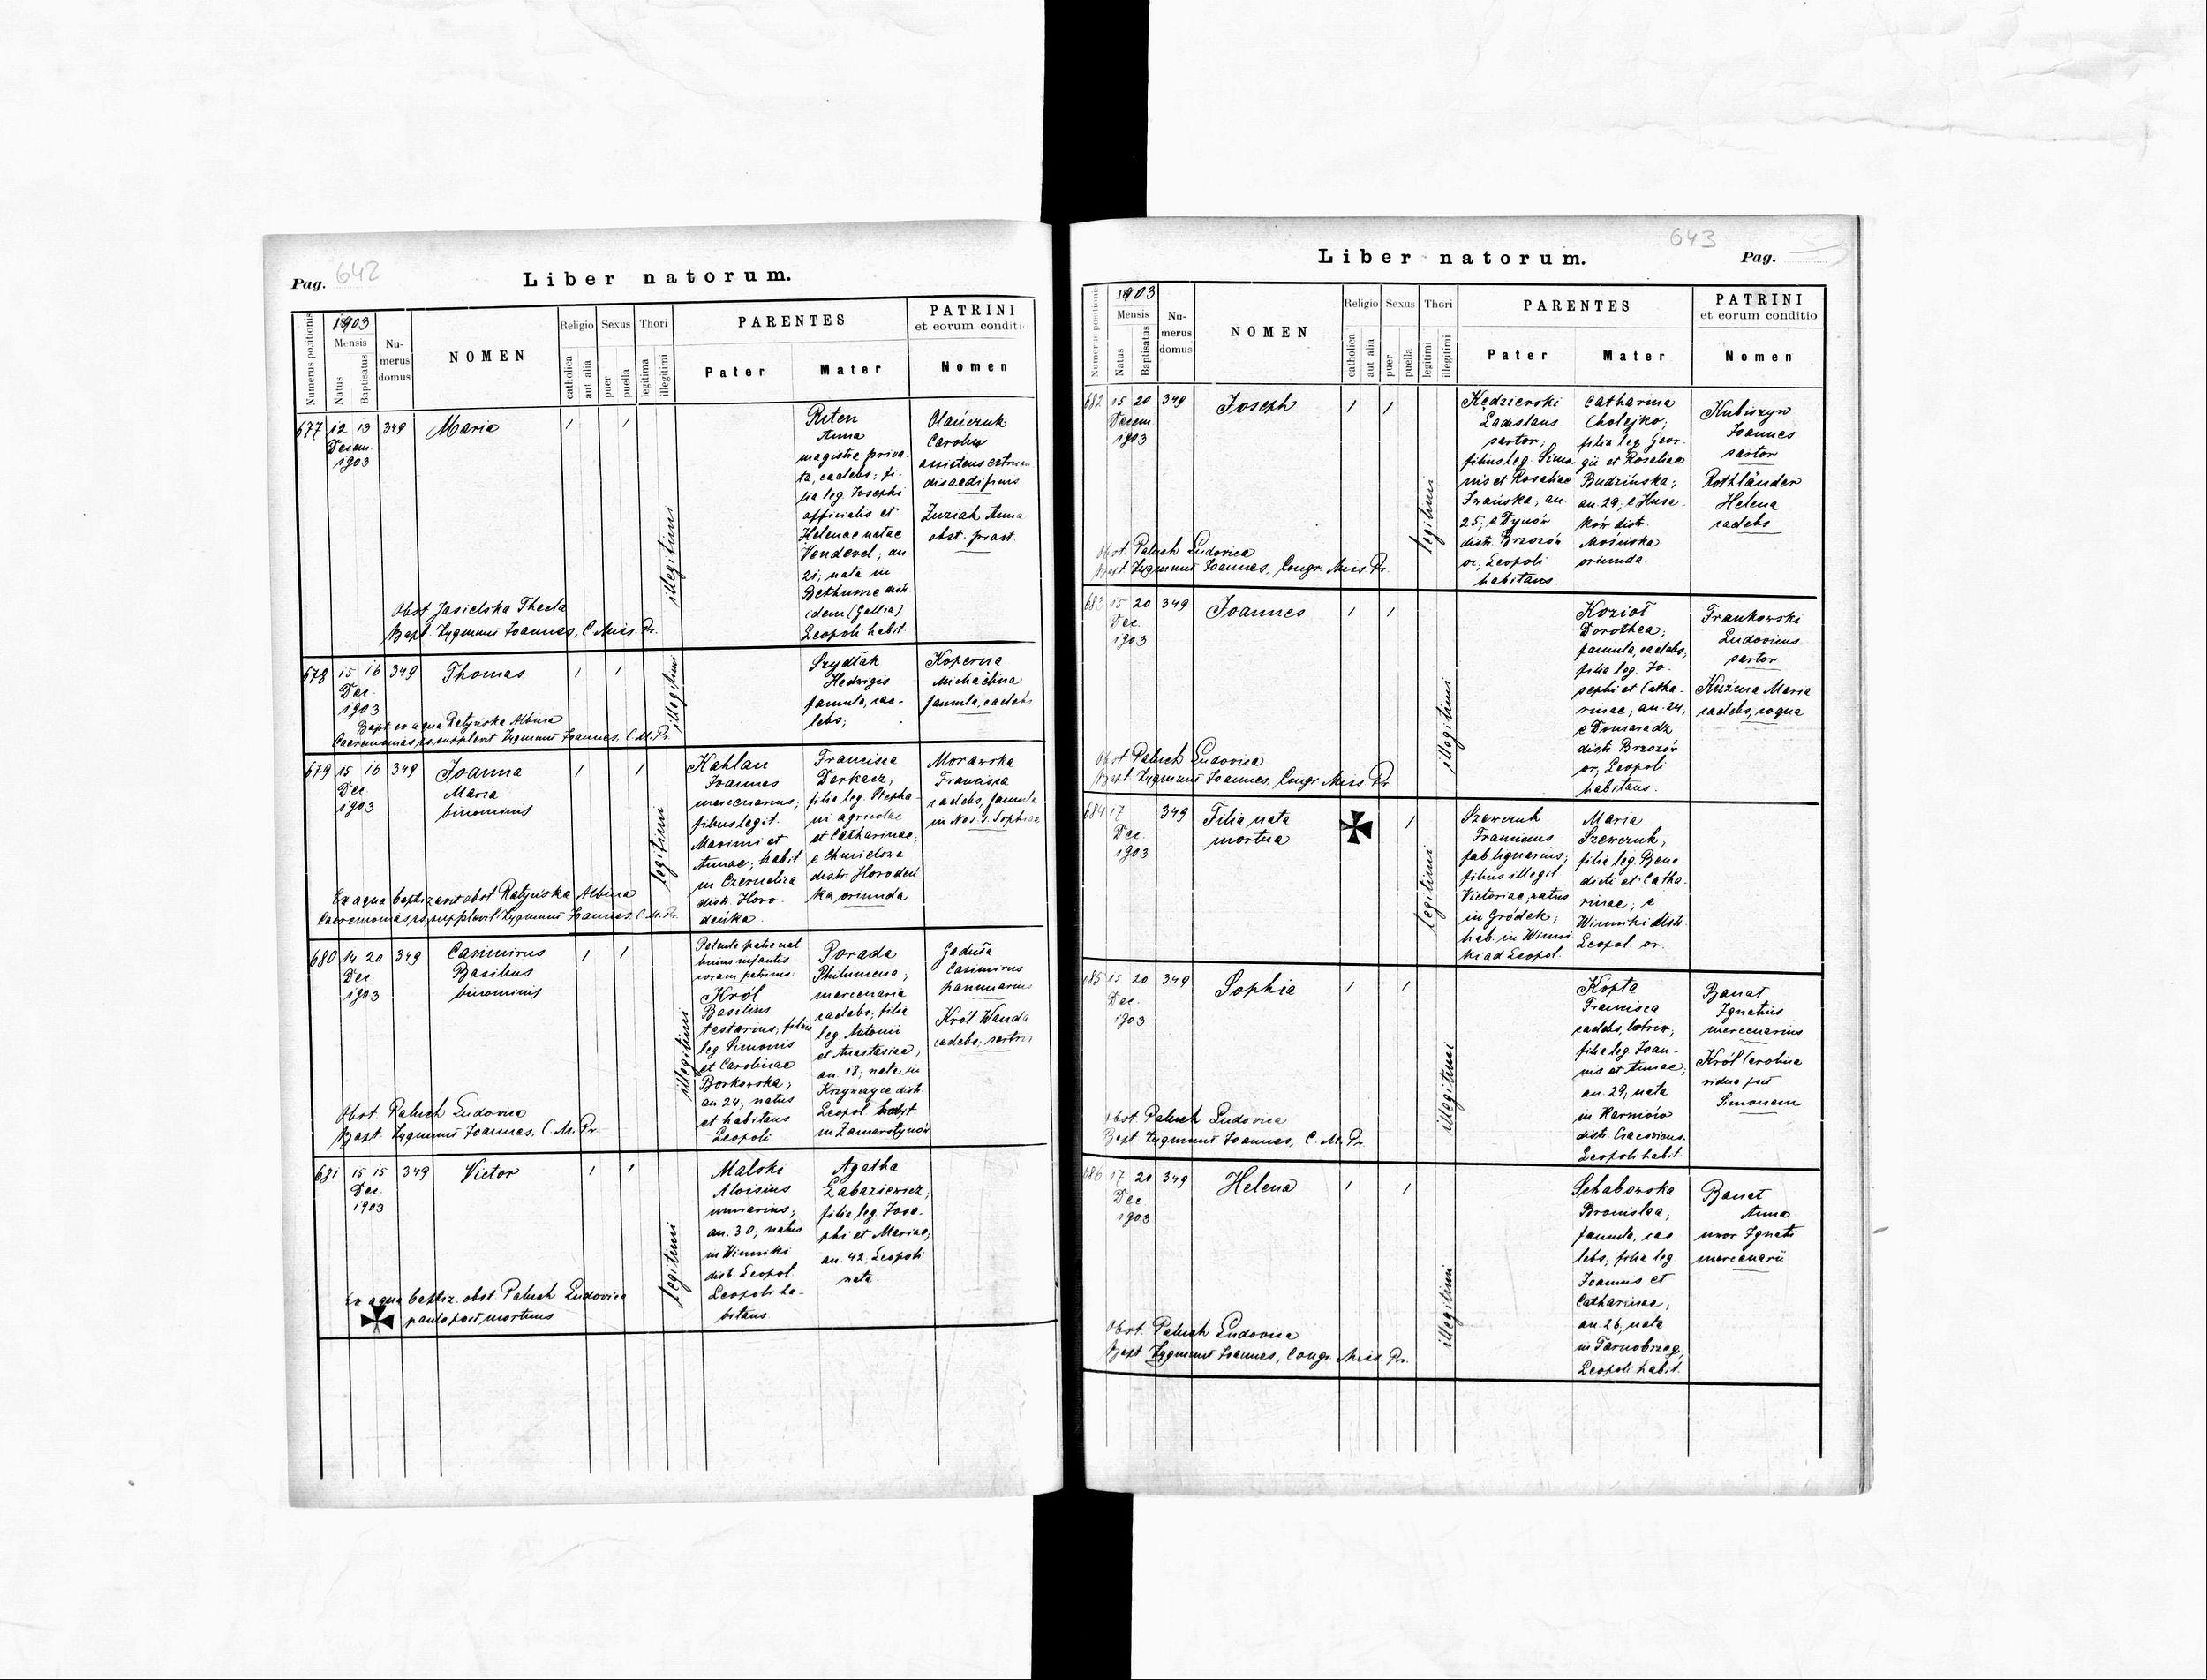 Pag. 642
Liber natorum.
Numerus positionis
1903
Mensis
Natus
Baptisatus
Nu-
merus
domus
NOMEN
Religio
catholica
aut alia
Sexus
puer
puella
Thori
legitima
illegitimi
PARENTES
Pater
Mater
PATRINI
et eorum conditio
Nomen
677 12 13 349 Maria
Decem.
1903
illegitimi
Riten
Anna
magistra priva-
ta, caelebs; fi-
lia leg. Josephi
officialis et
Helenae natae
Vendevel; an.
21; nata in
Bethume dist.
idem (Gallia)
Leopoli habit.
Olańczuk
Carolus
assistens
Zuziak Anna
obst. praet.
Obst. Jasielska Thecla
Bapt. Zygmunt Joannes, C. Miss. Pr.
678 15 16 349 Thomas
Dec.
1903
illegitimi
Szydłak
Hedwigis
famula, cae-
lebs;
Koperna
Michaëlina
famula, caelebs
Bapt. ex aqua Ratyńska Albina
Caeremonias ps. supplevit Zygmunt Joannes, C. M. Pr.
679 15 16 349 Joanna
Dec.
1903
Maria
binominis
legitimi
Kahlan
Joannes
mercenarius;
filius legit.
Maximi et
Annae; habit.
in Czernelica
distr. Horo-
denka.
Francisca
Derkacz,
filia leg. Stepha-
ni agricolae
et Catharinae;
e Chmielowa
distr. Horoden-
ka oriunda
Morawska
Francisca
caelebs, famula
in Nos. s. Sophiae
Ex aqua baptizavit obst. Ratyńska Albina
Caeremonias ps. supplevit Zygmunt Joannes, C. M. Pr.
680 14 20 349 Casimirus
Dec.
1903
Basilius
binominis
illegitimi
huius infantis
coram patrinis.
Król
Basilius
testarius; filius
leg. Simonis
et Carolinae
Borkowska;
an 24, natus
et habitans
Leopoli
Porada
Philumena;
mercenaria
caelebs; filia
leg. Antonii
et Anastasiae,
an. 18; nata in
Krzywczyce dist.
Leopol habit.
in Zamarstynów
Gadusa
Casimirus
pannuarius
Król Wanda
caelebs, sartrix
Obst. Paluch Ludovica
Bapt. Zygmunt Joannes, C. M. Pr.
681 15 15 349 Victor
Dec.
1903
legitimi
Malski
Aloisius
murarius;
an. 30, natus
in Winniki
dist. Leopol.
Leopoli ha-
bitans.
Agatha
Łabaziewicz,
filia leg. Jose-
phi et Mariae;
an. 42, Leopoli
nata.
Ex aqua baptiz. obst. Paluch Ludovica
paulo post mortuus
643
Liber natorum.
Pag.
Numerus positionis
1903
Mensis
Natus
Baptisatus
Nu-
merus
domus
NOMEN
Religio
catholica
aut alia
Sexus
puer
puella
Thori
legitimi
illegitimi
PARENTES
Pater
Mater
PATRINI
et eorum conditio
Nomen
682 15 20 349 Joseph
Decem
1903
legitimi
Kędzierski
Ladislaus
sartor;
filius leg. Simo-
nis et Rosaliae
Iwańska; an.
25; e Dynów
distr. Brzozów
or; Leopoli
habitans.
Catharina
Cholejko;
filia leg. Geor-
gii et Rosaliae
Budzińska;
an. 29; e Husa-
ków distr.
Mośniska
oriunda.
Kubiszyn
Joannes
sartor
Rothländer
Helena
caelebs
Obst. Paluch Ludovica
Bapt. Zygmunt Joannes, Congr. Miss. Pr.
683 15 20 349 Joannes
Dec.
1903
illegitimi
Kozioł
Dorothea;
famula, caelebs;
filia leg. Jo-
sephi et Catha-
rinae, an. 24,
e Domaradz
distr. Brzozów
or, Leopoli
habitans.
Frankowski
Ludovicus
sartor
Kuźma Maria
caelebs, coqua
Obst. Paluch Ludovica
Bapt. Zygmunt Joannes, Congr. Miss. Pr.
684 17 349 Filia nata
Dec.
1903
mortua
legitimi
Szewczuk
Franciscus
fab. lignarius;
filius illegit
Victoriae, natus
in Gródek;
hab. in Winni-
ki ad Leopol.
Maria
Szewczuk,
filia leg. Bene-
dicti et Catha-
rinae; e
Winniki distr.
Leopol or.
685 15 20 349 Sophia
Dec.
1903
illegitimi
Kopta
Francisca
caelebs, lotrix,
filia leg. Joan-
nis et Annae;
an. 29, nata
in Karniów
distr. Cracoviens.
Leopoli habit.
Banat
Ignatius
mercenarius
Król Carolina
vidua post
Simonem
Obst. Paluch Ludovica
Bapt. Zygmunt Joannes, C. M. Pr.
686 17 20 349 Helena
Dec.
1903
illegitimi
Schabowska
Bronislaa;
famula, cae-
lebs; filia leg
Joannis et
Catharinae,
an. 26, nata
in Tarnobrzeg,
Leopoli habit.
Banat
Anna
uxor Ignatii
mercenarii
Obst. Paluch Ludovica
Bapt. Zygmunt Joannes, Congr. Miss. Pr.